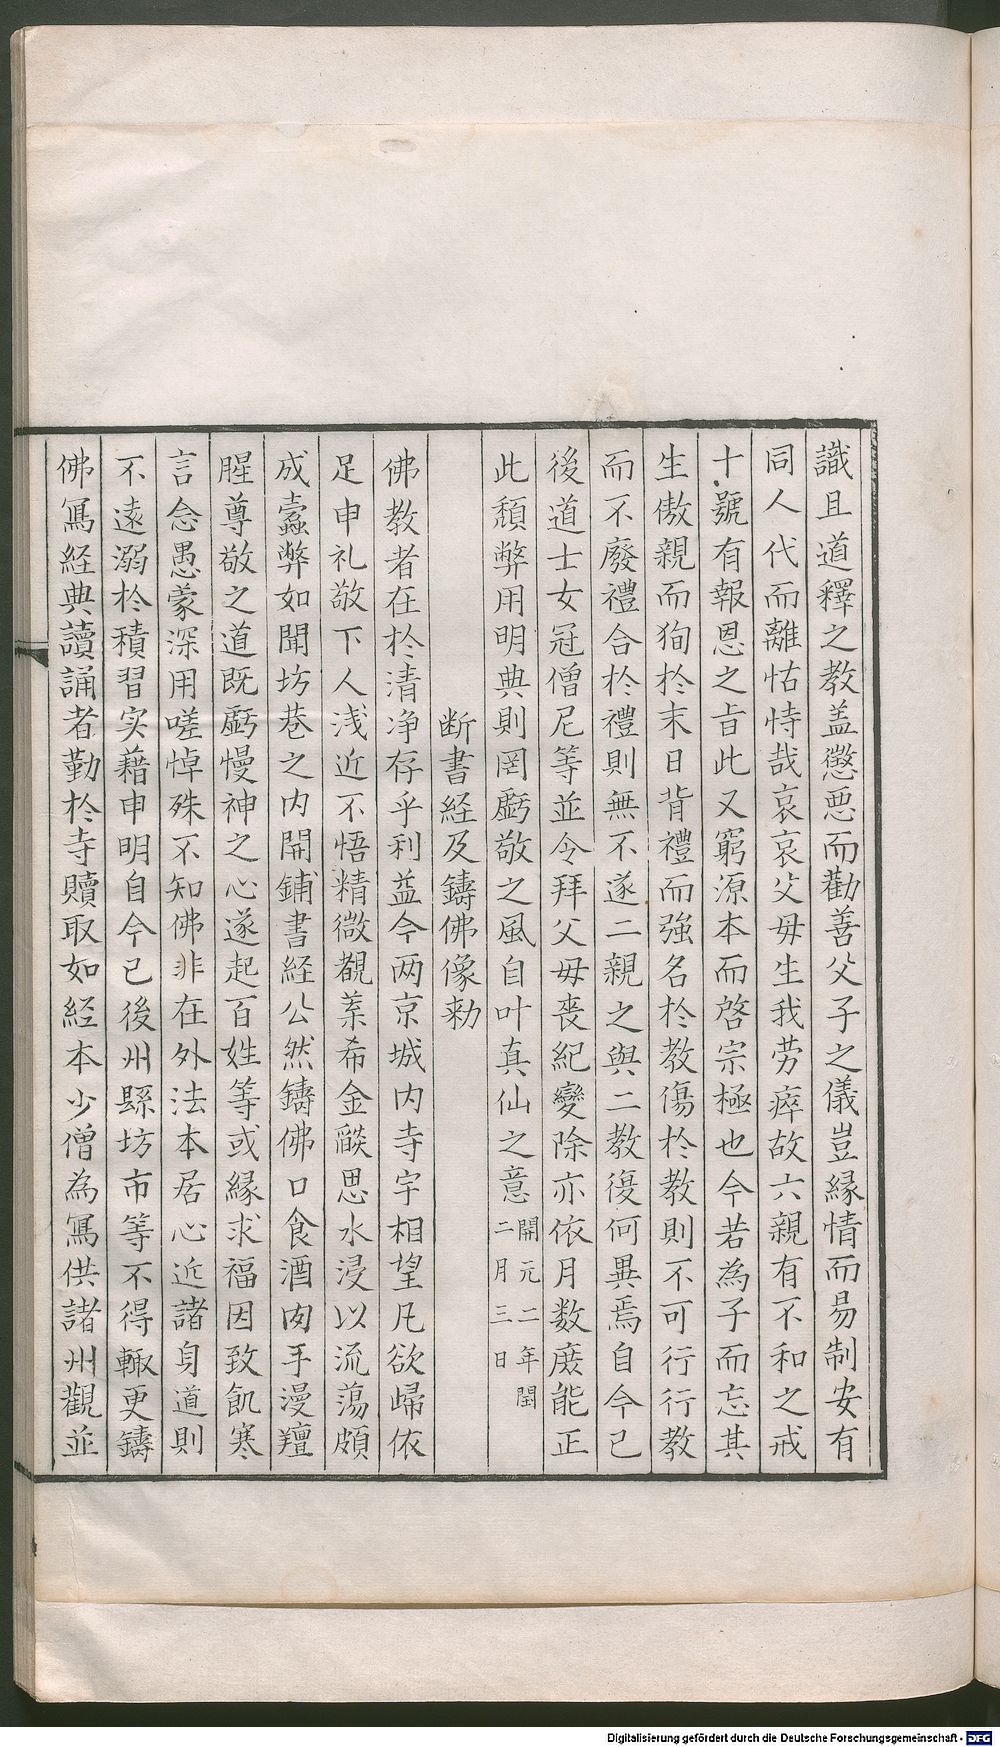 識且道釋之教盖懲悪而勸善父子之儀豈縁情而易制安有
同人代而離怙恃哉哀哀父毋生我劳瘁故六親有不和之戒
十號有報恩之㫖此又窮源本而啓宗極也今若為子而忘其
生傲親而狥扵末日背禮而強名扵教傷扵教則不可行行教
而不廢禮合扵禮則無不遂二親之與二教復何異焉自今已
後道士女冠僧尼等並令拜父毋喪紀變除亦依月数庻能正
此頽弊用明典則罔虧敬之風自叶真仙之意開元二年閏二月三日
断書経及鑄佛像勑
佛教者在扵清净存乎利益今两京城内寺宇相望凡欲歸依
足申礼敬下人浅近不悟精微覩菜希金𦦨思水浸以流蕩頗
成蠧弊如聞坊巷之内開鋪書経公然鑄佛口食酒肉手漫羶
腥尊敬之道既虧慢神之心遂起百姓等或縁求福因致飢寒
言念愚蒙深用嗟悼殊不知佛非在外法本居心近諸身道則
不遠溺扵積習实藉申明自今已後州縣坊市等不得輙更鑄
佛冩経典讀誦者勤扵寺贖取如経本少僧為冩供諸州觀並
Digitalisierung gefördert durch die Deutsche Forschungsgemeinschaft - DFG